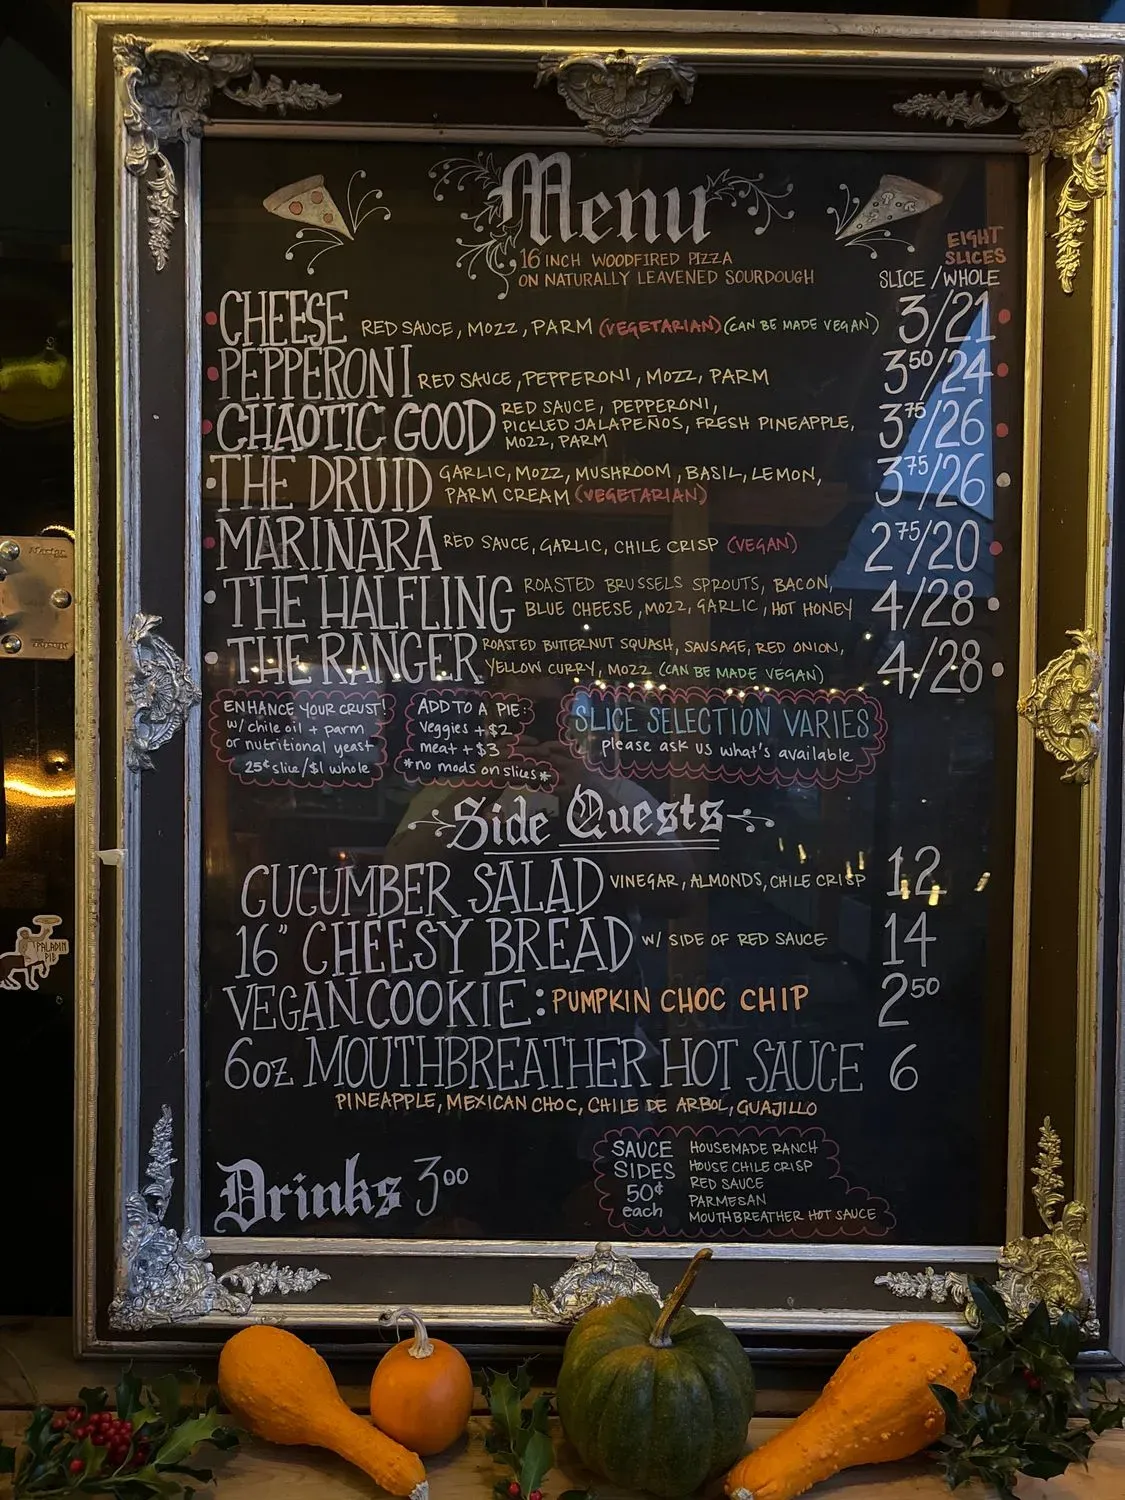 Menu
16 INCH WOODFIRED PIZZA
ON NATURALLY LEAVENED SOURDOUGH
EIGHT
SLICES
SLICE / WHOLE
CHEESE RED SAUCE, MOZZ, PARM (VEGETARIAN) (CAN BE MADE VEGAN) 3/21
PEPPERONI RED SAUCE, PEPPERONI, MOZZ, PARM 3 50/24
CHAOTIC GOOD RED SAUCE, PEPPERONI,
PICKLED JALAPEÑOS, FRESH PINEAPPLE,
MOZZ, PARM 3 75/26
THE DRUID GARLIC, MOZZ, MUSHROOM, BASIL, LEMON,
PARM CREAM (VEGETARIAN) 3 75/26
MARINARA RED SAUCE, GARLIC, CHILE CRISP (VEGAN) 2 75/20
THE HALFLING ROASTED BRUSSELS SPROUTS, BACON,
BLUE CHEESE, MOZZ, GARLIC, HOT HONEY 4/28
THE RANGER ROASTED BUTTERNUT SQUASH, SAUSAGE, RED ONION,
YELLOW CURRY, MOZZ (CAN BE MADE VEGAN) 4/28
ENHANCE YOUR CRUST!
w/ chile oil + parm
or nutritional yeast
25¢ slice/$1 whole
ADD TO A PIE:
Veggies +$2
meat +$3
*no mods on slices*
SLICE SELECTION VARIES
please ask us what's available
Side Quests
CUCUMBER SALAD VINEGAR, ALMONDS, CHILE CRISP 12
16" CHEESY BREAD W/ SIDE OF RED SAUCE 14
VEGAN COOKIE: PUMPKIN CHOC CHIP 2 50
6oz MOUTHBREATHER HOT SAUCE 6
PINEAPPLE, MEXICAN CHOC, CHILE DE ARBOL, GUAJILLO
Drinks 3 00
SAUCE
SIDES
50¢
each
HOUSEMADE RANCH
HOUSE CHILE CRISP
RED SAUCE
PARMESAN
MOUTHBREATHER HOT SAUCE
PALADIN
PIE